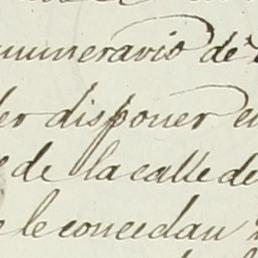 numerario de
er disponer en
de la calle de
le concedan